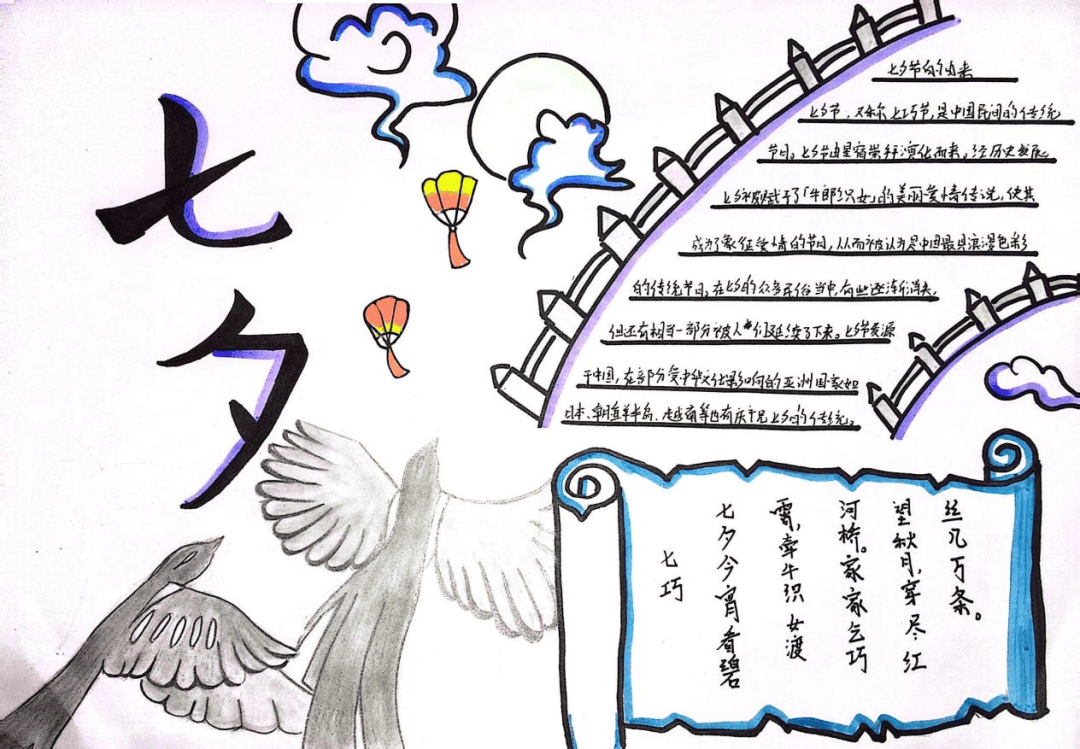 七夕
七夕节的由来
七夕节,又称七巧节,是中国民间的传统
节日。七夕节由星宿崇拜演化而来,经历史发展,
七夕被赋予了「牛郎织女」的美丽爱情传说,使其
成为了象征爱情的节日,从而被认为是中国最具浪漫色彩
的传统节日。在七夕的众多民俗当中,有些逐渐消失,
但还有相当一部分被人们延续了下来。七夕节发源
于中国,在部分受中华文化影响的亚洲国家如
日本、朝鲜半岛、越南等也有庆祝七夕的传统。
七巧
七夕今宵看碧
霄,牵牛织女渡
河桥。家家乞巧
望秋月,穿尽红
丝几万条。